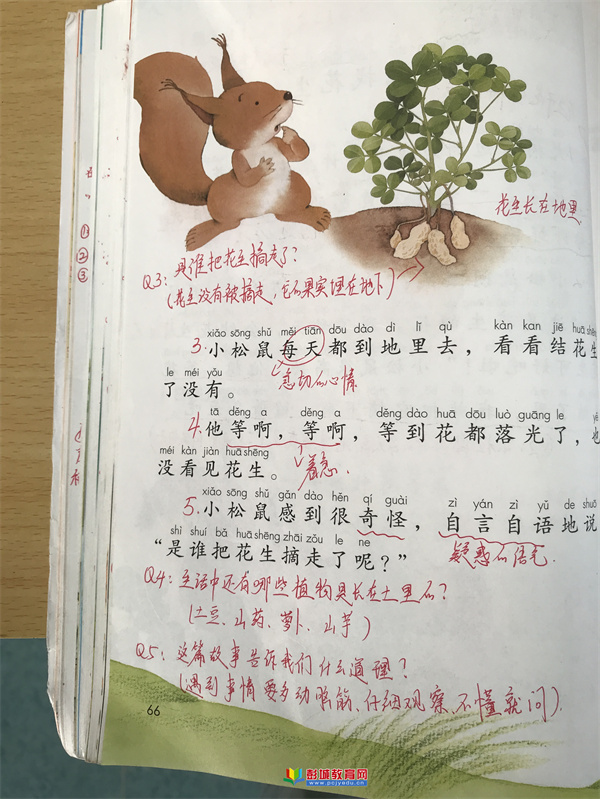 花生长在地里
Q3: 是谁把花生摘走了?
(花生没有被摘走,它的果实埋在地下)
xiǎo sōng shǔ měi tiān dōu dào dì lǐ qù kàn kan jiē huā shēng
3.小松鼠每天都到地里去,看看结花生
le méi yǒu
了没有。
急切的心情
tā děng a děng a děng dào huā dōu luò guāng le yě
4.他等啊,等啊,等到花都落光了,也
méi kàn jiàn huā shēng
没看见花生。
着急.
xiǎo sōng shǔ gǎn dào hěn qí guài zì yán zì yǔ de shuō
5.小松鼠感到很奇怪,自言自语地说
shì shuí bǎ huā shēng zhāi zǒu le ne
“是谁把花生摘走了呢?”
疑惑的语气
Q4: 生活中还有哪些植物是长在土里的?
(土豆、山药、萝卜、山芋)
Q5: 这篇故事告诉我们什么道理?
(遇到事情要多动脑筋、仔细观察、不懂就问).
66
彭城教育网
www.pcjyedu.com